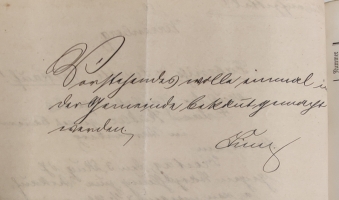 Vorstehendes wolle einmal in
der Gemeinde bekannt gemacht
werden.